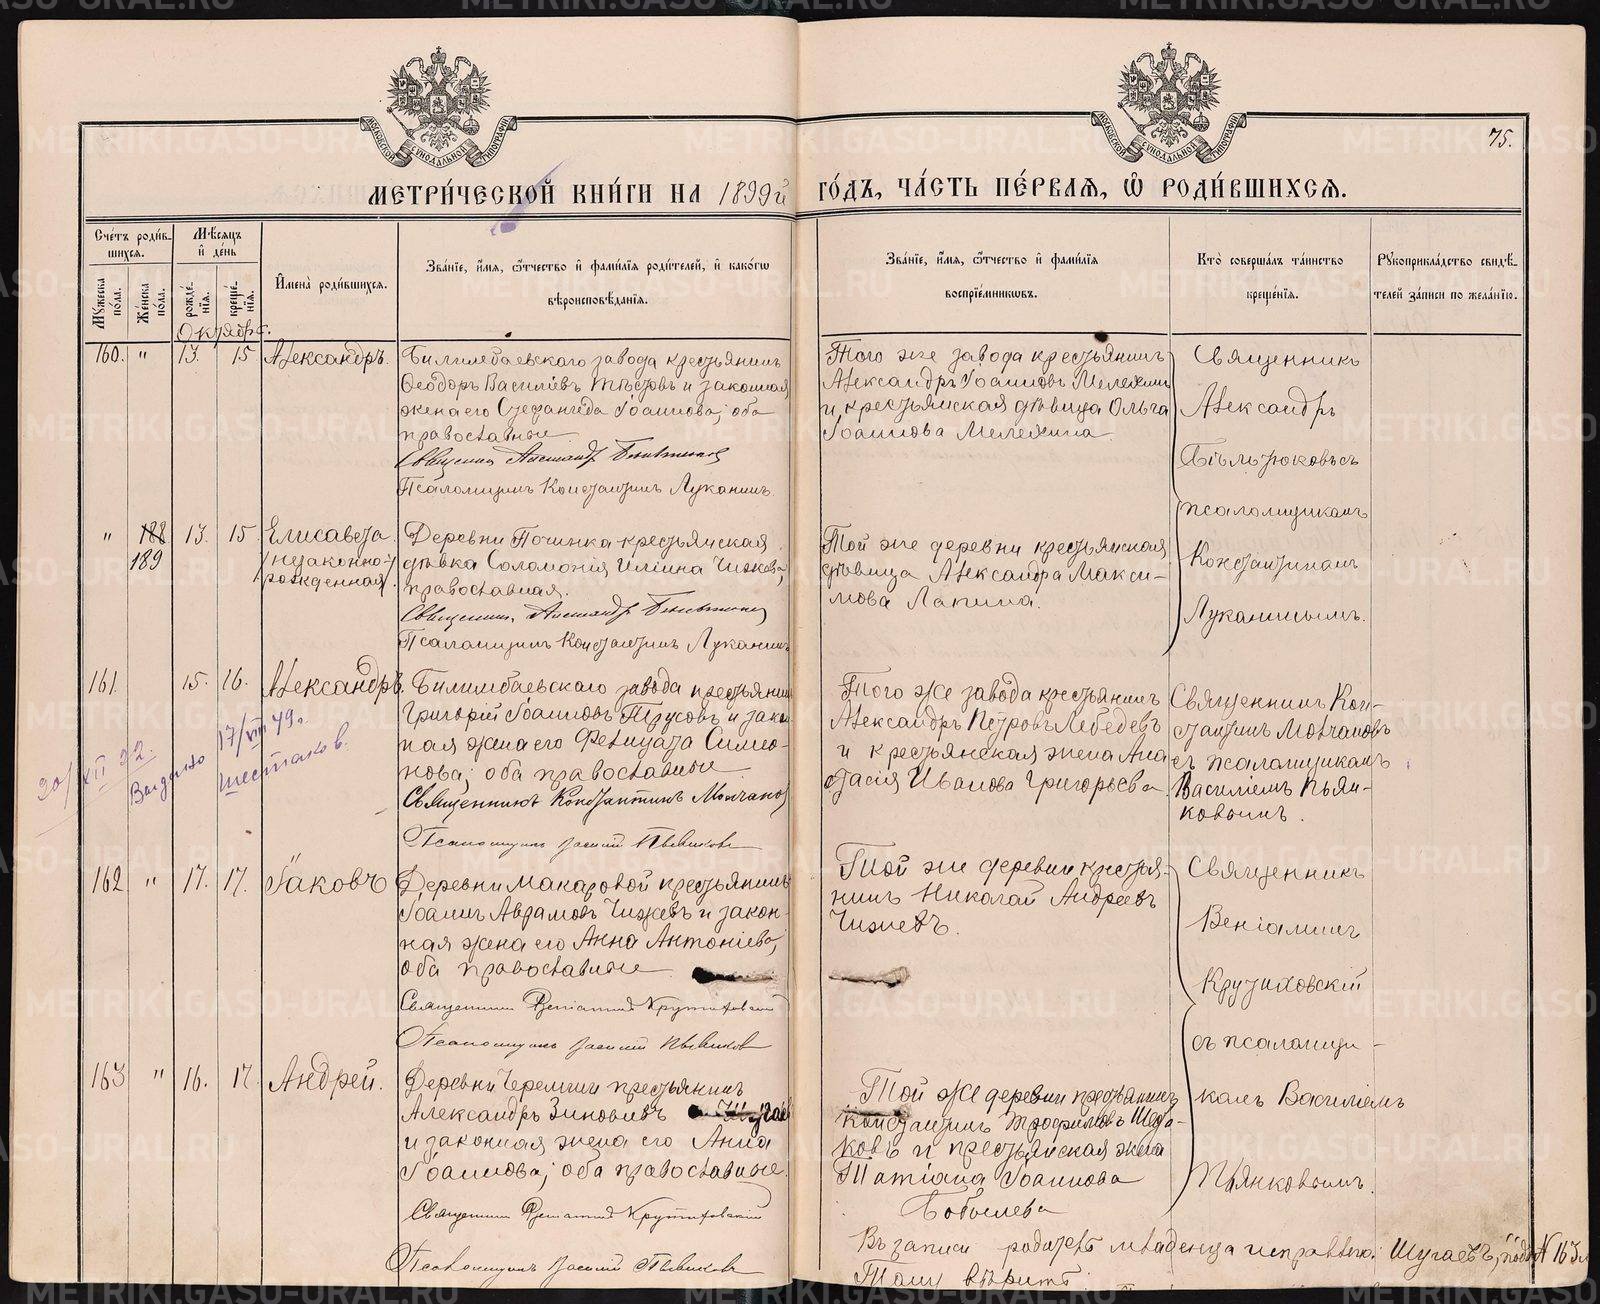 75.
МЕТРИ́ЧЕСКОЙ КНИ́ГИ НА 1899й ГО́ДЪ, ЧА́СТЬ ПЕ́РВАѦ, Ѿ РОДИ́ВШИХСѦ.
Сче́тъ роди́в-
шихсѧ.
Мꙋ́жеска по́ла.
Же́нска по́ла.
Мѣ́сѧцъ
и҆ де́нь
рожде́-
нїѧ.
креще́-
нїѧ.
И҆мена̀ роди́вшихсѧ.
Зва́нїе, и҆́мѧ, ѻ҆́тчество и҆ фами́лїѧ роди́телей, и҆ како́гѡ
вѣроисповѣ́данїѧ.
Зва́нїе, и҆́мѧ, ѻ҆́тчество и҆ фами́лїѧ
воспрїе́мникѡвъ.
Кто̀ соверша́лъ та́инство
креще́нїѧ.
Рꙋкоприкла́дство свидѣ́-
телей за́писи по жела́нїю.
Октябрь.
160. " 13. 15 Александръ.
Билимбаевскаго завода крестьянинъ
Ѳеодоръ Василіевъ и законная
жена его Стефанида Іоаннова, оба
православные
Священникъ Александръ
Псаломщикъ Константинъ Луканинъ
Того же завода крестьянинъ
Александръ Іоанновъ Мележинъ
и крестьянская дѣвица Ольга
Іоаннова Мележина.
Священникъ
Александръ
съ
псаломщикомъ
Константиномъ
Луканинымъ.
" 188 13. 15 Елисавета
189
(незаконно-
рожденная).
Деревни Починка крестьянская
дѣвка Соломонія Иліина Чижева,
православная.
Священникъ Александръ
Псаломщикъ Константинъ Луканинъ
Той же деревни крестьянская
дѣвица Александра Макси-
мова Лапина.
161. 15. 16. Александръ.
Билимбаевскаго завода крестьянинъ
Григорій Іоанновъ Трусовъ и закон
ная жена его Фелицата Симео-
нова, оба православные
Священникъ Константинъ Молчановъ
Псаломщикъ Василій Пьянковъ
Того же завода крестьянинъ
Александръ Петровъ Лебедевъ
и крестьянская жена Ана
стасія Иванова Григорьева.
Священникъ Кон-
стантинъ Молчановъ
съ псаломщикомъ
Василіемъ Пьян-
ковымъ.
20/XII 22.
Выдано 17/VIII 49г.
Шестаков.
162 " 17. 17. Іаковъ
Деревни Макаровой крестьянинъ
Іоаннъ Аврамовъ Чижевъ и закон-
ная жена его Анна Антоніева,
оба православные
Священникъ Веніаминъ Крутиховскій
Псаломщикъ Василій Пьянковъ
Той же деревни крестья-
нинъ Николай Андреевъ
Чижевъ.
Священникъ
Веніаминъ
Крутиховскій
съ псаломщи-
комъ Василіемъ
Пьянковымъ.
163 " 16. 17. Андрей.
Деревни Черемши крестьянинъ
Александръ Зиновьевъ Шугаевъ
и законная жена его Анна
Іоаннова, оба православные.
Священникъ Веніаминъ Крутиховскій
Псаломщикъ Василій Пьянковъ
Той же деревни крестьянинъ
Константинъ Трофимовъ
и крестьянская жена
Татіана Іоаннова
Бобылева
Въ записи младенца исправлено: Шугаевъ, подъ № 163м
Тому вѣрить